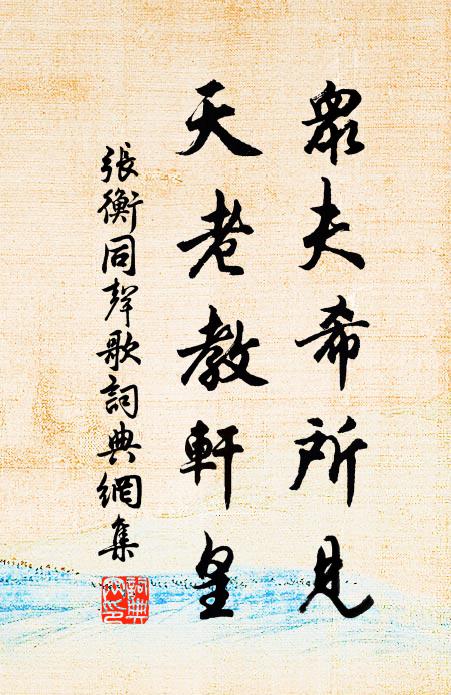 眾夫希所見
天老教軒皇
張衡同聲歌詞典網集